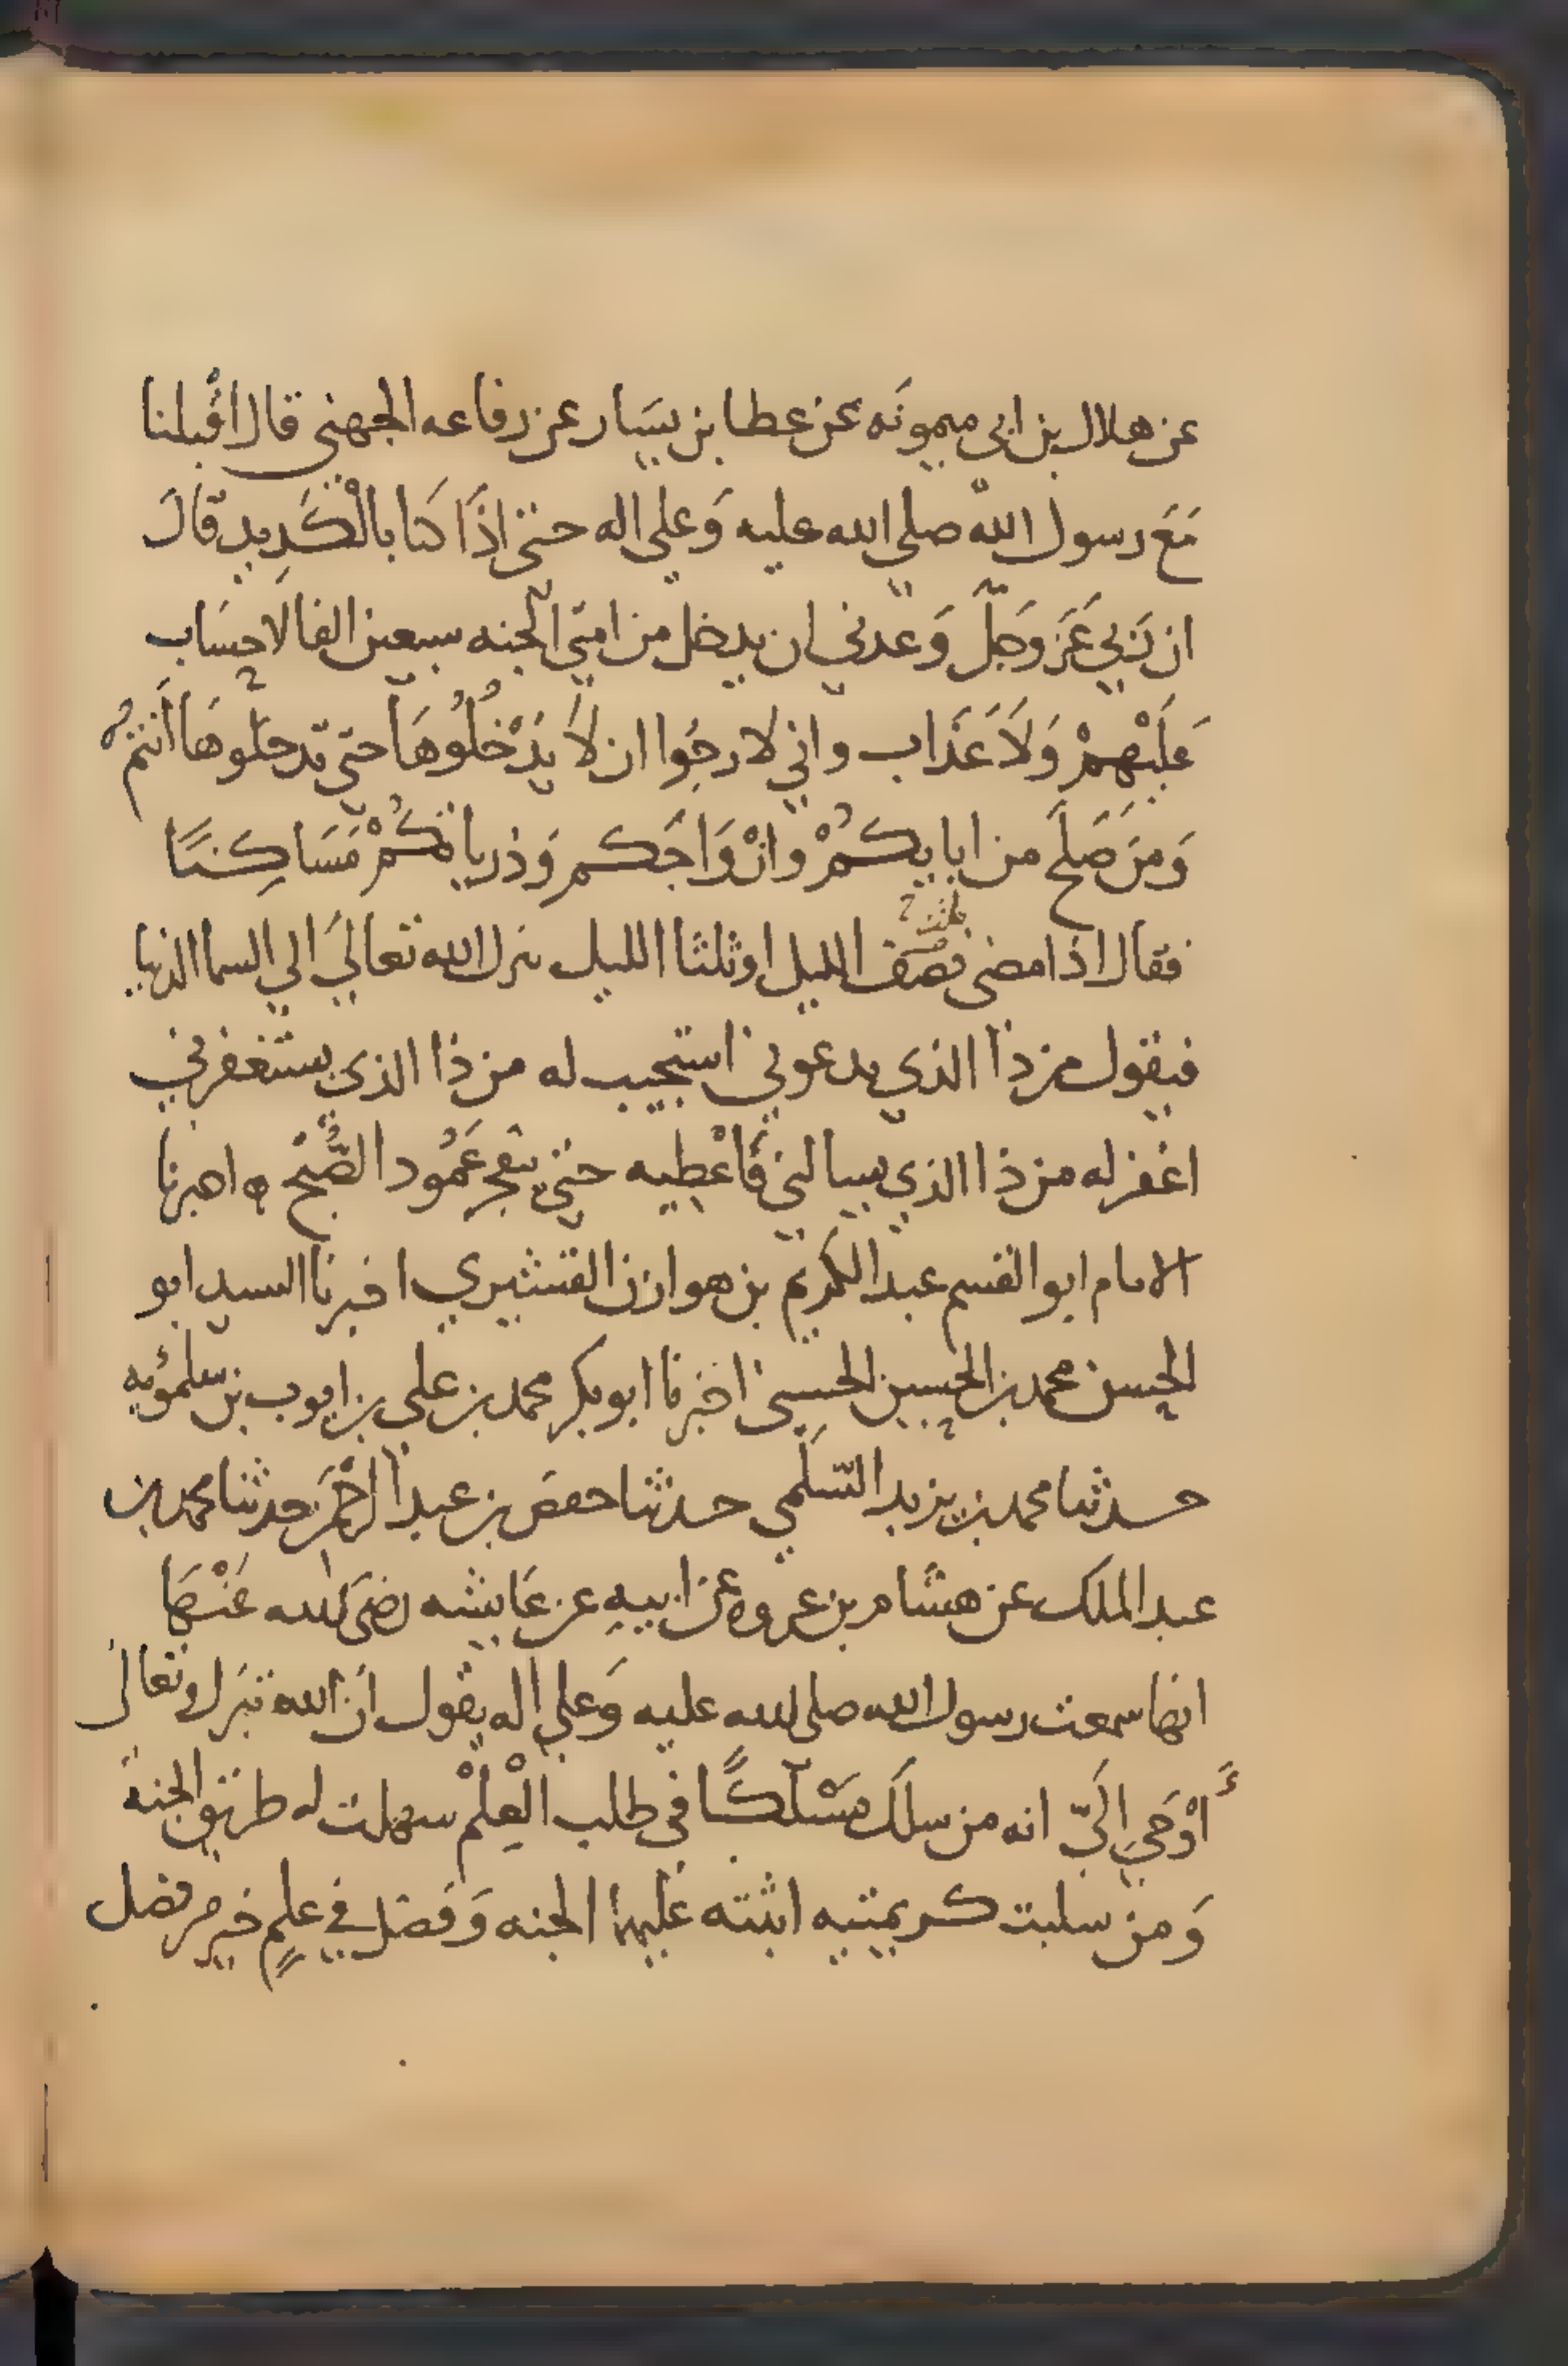 عن هلال بن ابي ميمونَه عَن عطا بن يسَار عن رفاعه الجهني قال اقْبلنا
مَعَ رسول اللّه صلي الله عليه وَعلي اله حتى اذَا كنا بالْكَدِيدِ قالَ
ان رَبي عَزَ وَجَلَّ وَعدني ان يدخل من امتي الجنه سبعين الفا لا حِسَاب
عَلَيْهِمْ وَلَا عَذاب واني لارجُوا ان لَا يَدْخُلُوهَا حتى تدخلوهَا انتمُ
وَمنَ صَلحَ من ابايكُمْ وازْوَاجَكم وَذرياتكُمْ مَسَاكِنًا
فقال اذا مضى نصف الليل او ثلثا الليل نزل الله تعالي الي السما الدنيا
فيقول من ذا الذي يدعوني استجيب له من ذا الذي يستغفرني
اغفر له من ذا الذي يسالني فَاعْطِيه حتى ينفجر عَمُود الصُّبْح ه اخبرنا
الامام ابو القسم عبد الكَريم بن هوازن القشيري اخبرنا السيد ابو
الحسن محمد بن الحسين الحسِني اخبرنا ابو بكر محمد بن علي بن ايوب بن سلمُويه
حدثنا محمد بن يزيد السّلَمي حدثنا حفصَ بن عبد الرحْمَن حدثنا محمد بن
عبد الملك عن هشام بن عروه عن ابيهِ عن عَايشه رضىَ الله عَنْهَا
انها سمعت رسول الله صلى الله عليه وَعلي اله يقول ان الله تبَرك وتعالى
أوْحَي اِلَيّ انه من سلَك مَسْلَكًا في طلب الْعِلْمْ سهلت له طريق الجنهَ
وَمن سلبت كريمتيه اثبته عَليهما الجنه وَفضل في علمٍ خير من فضل